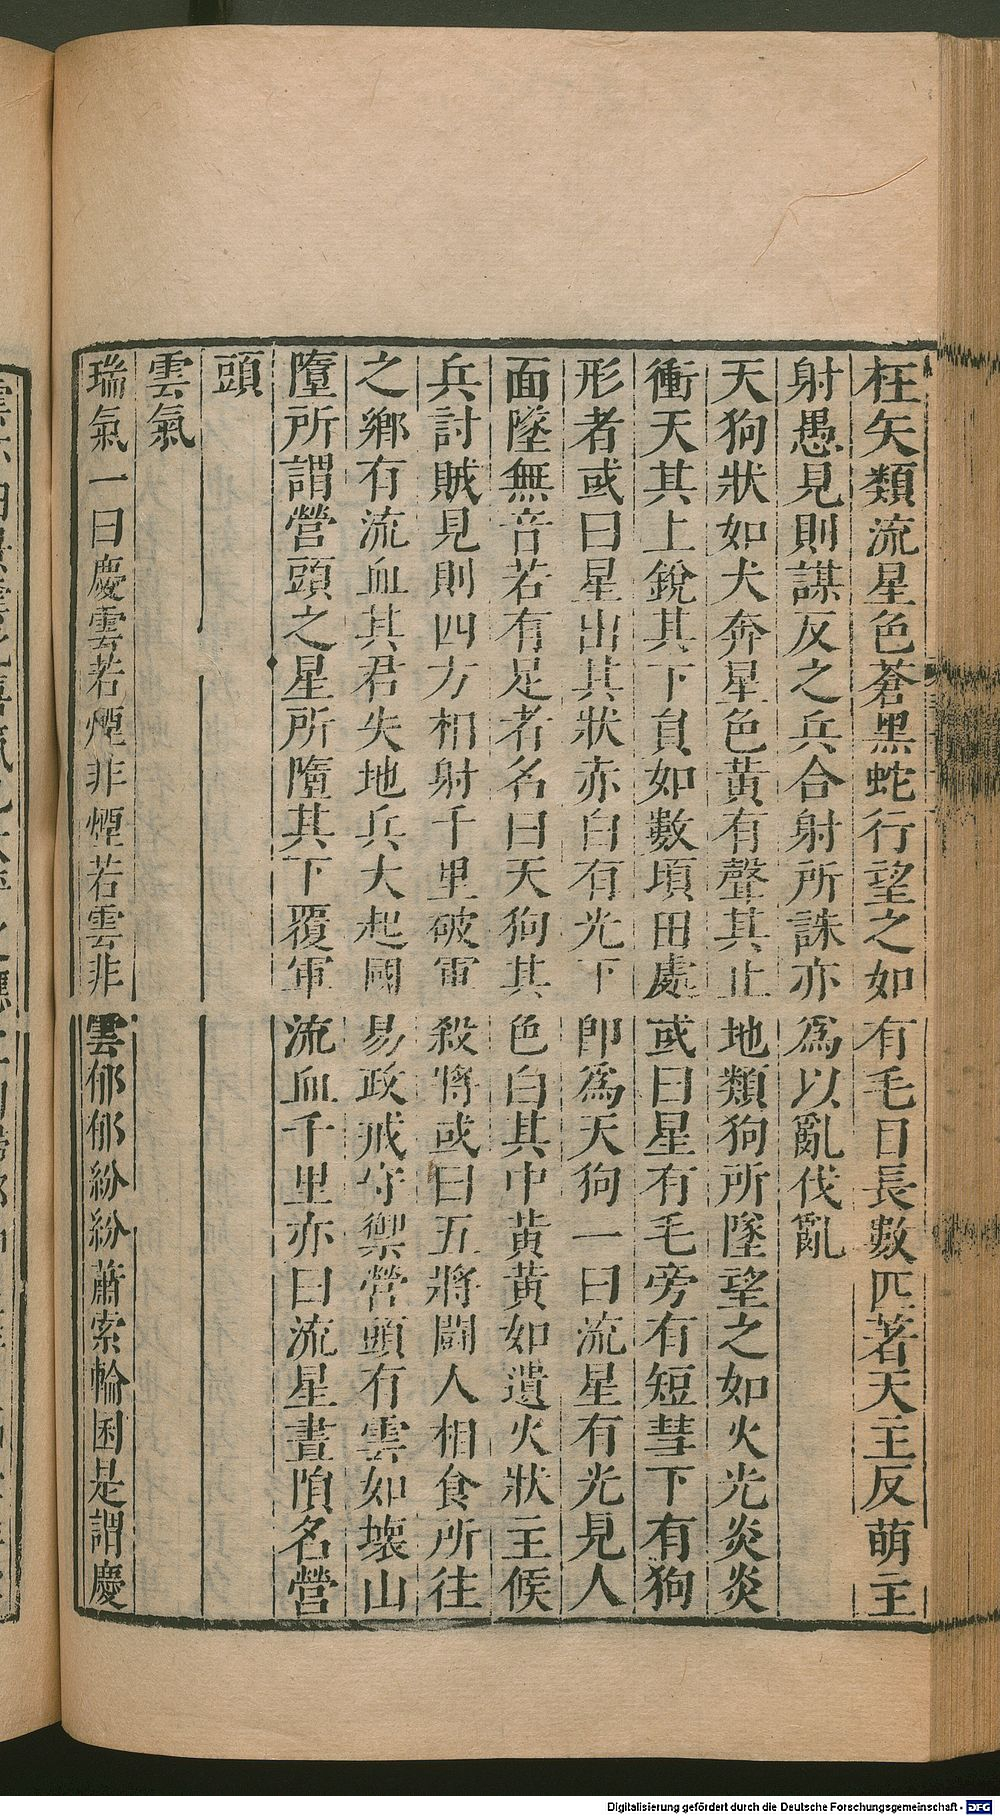 枉矢類流星色蒼黑蛇行望之如有毛目長數匹著天主反萌主
射愚見則謀反之兵合射所誅亦為以亂伐亂
天狗狀如犬奔星色黃有聲其止地類狗所墜望之如火光炎炎
衝天其上銳其下負如數頃田處或曰星有毛旁有短彗下有狗
形者或曰星出其狀赤白有光下即為天狗一曰流星有光見人
面墜無音若有足者名曰天狗其色白其中黃黃如遺火狀主候
兵討賊見則四方相射千里破軍殺將或曰五將鬬人相食所往
之鄉有流血其君失地兵大起國易政戒守禦營頭有雲如壞山
墮所謂營頭之星所墮其下覆軍流血千里亦曰流星晝隕名營
頭
雲氣
瑞氣一曰慶雲若煙非煙若雲非雲郁郁紛紛蕭索輪囷是謂慶
Digitalisierung gefördert durch die Deutsche Forschungsgemeinschaft - DFG